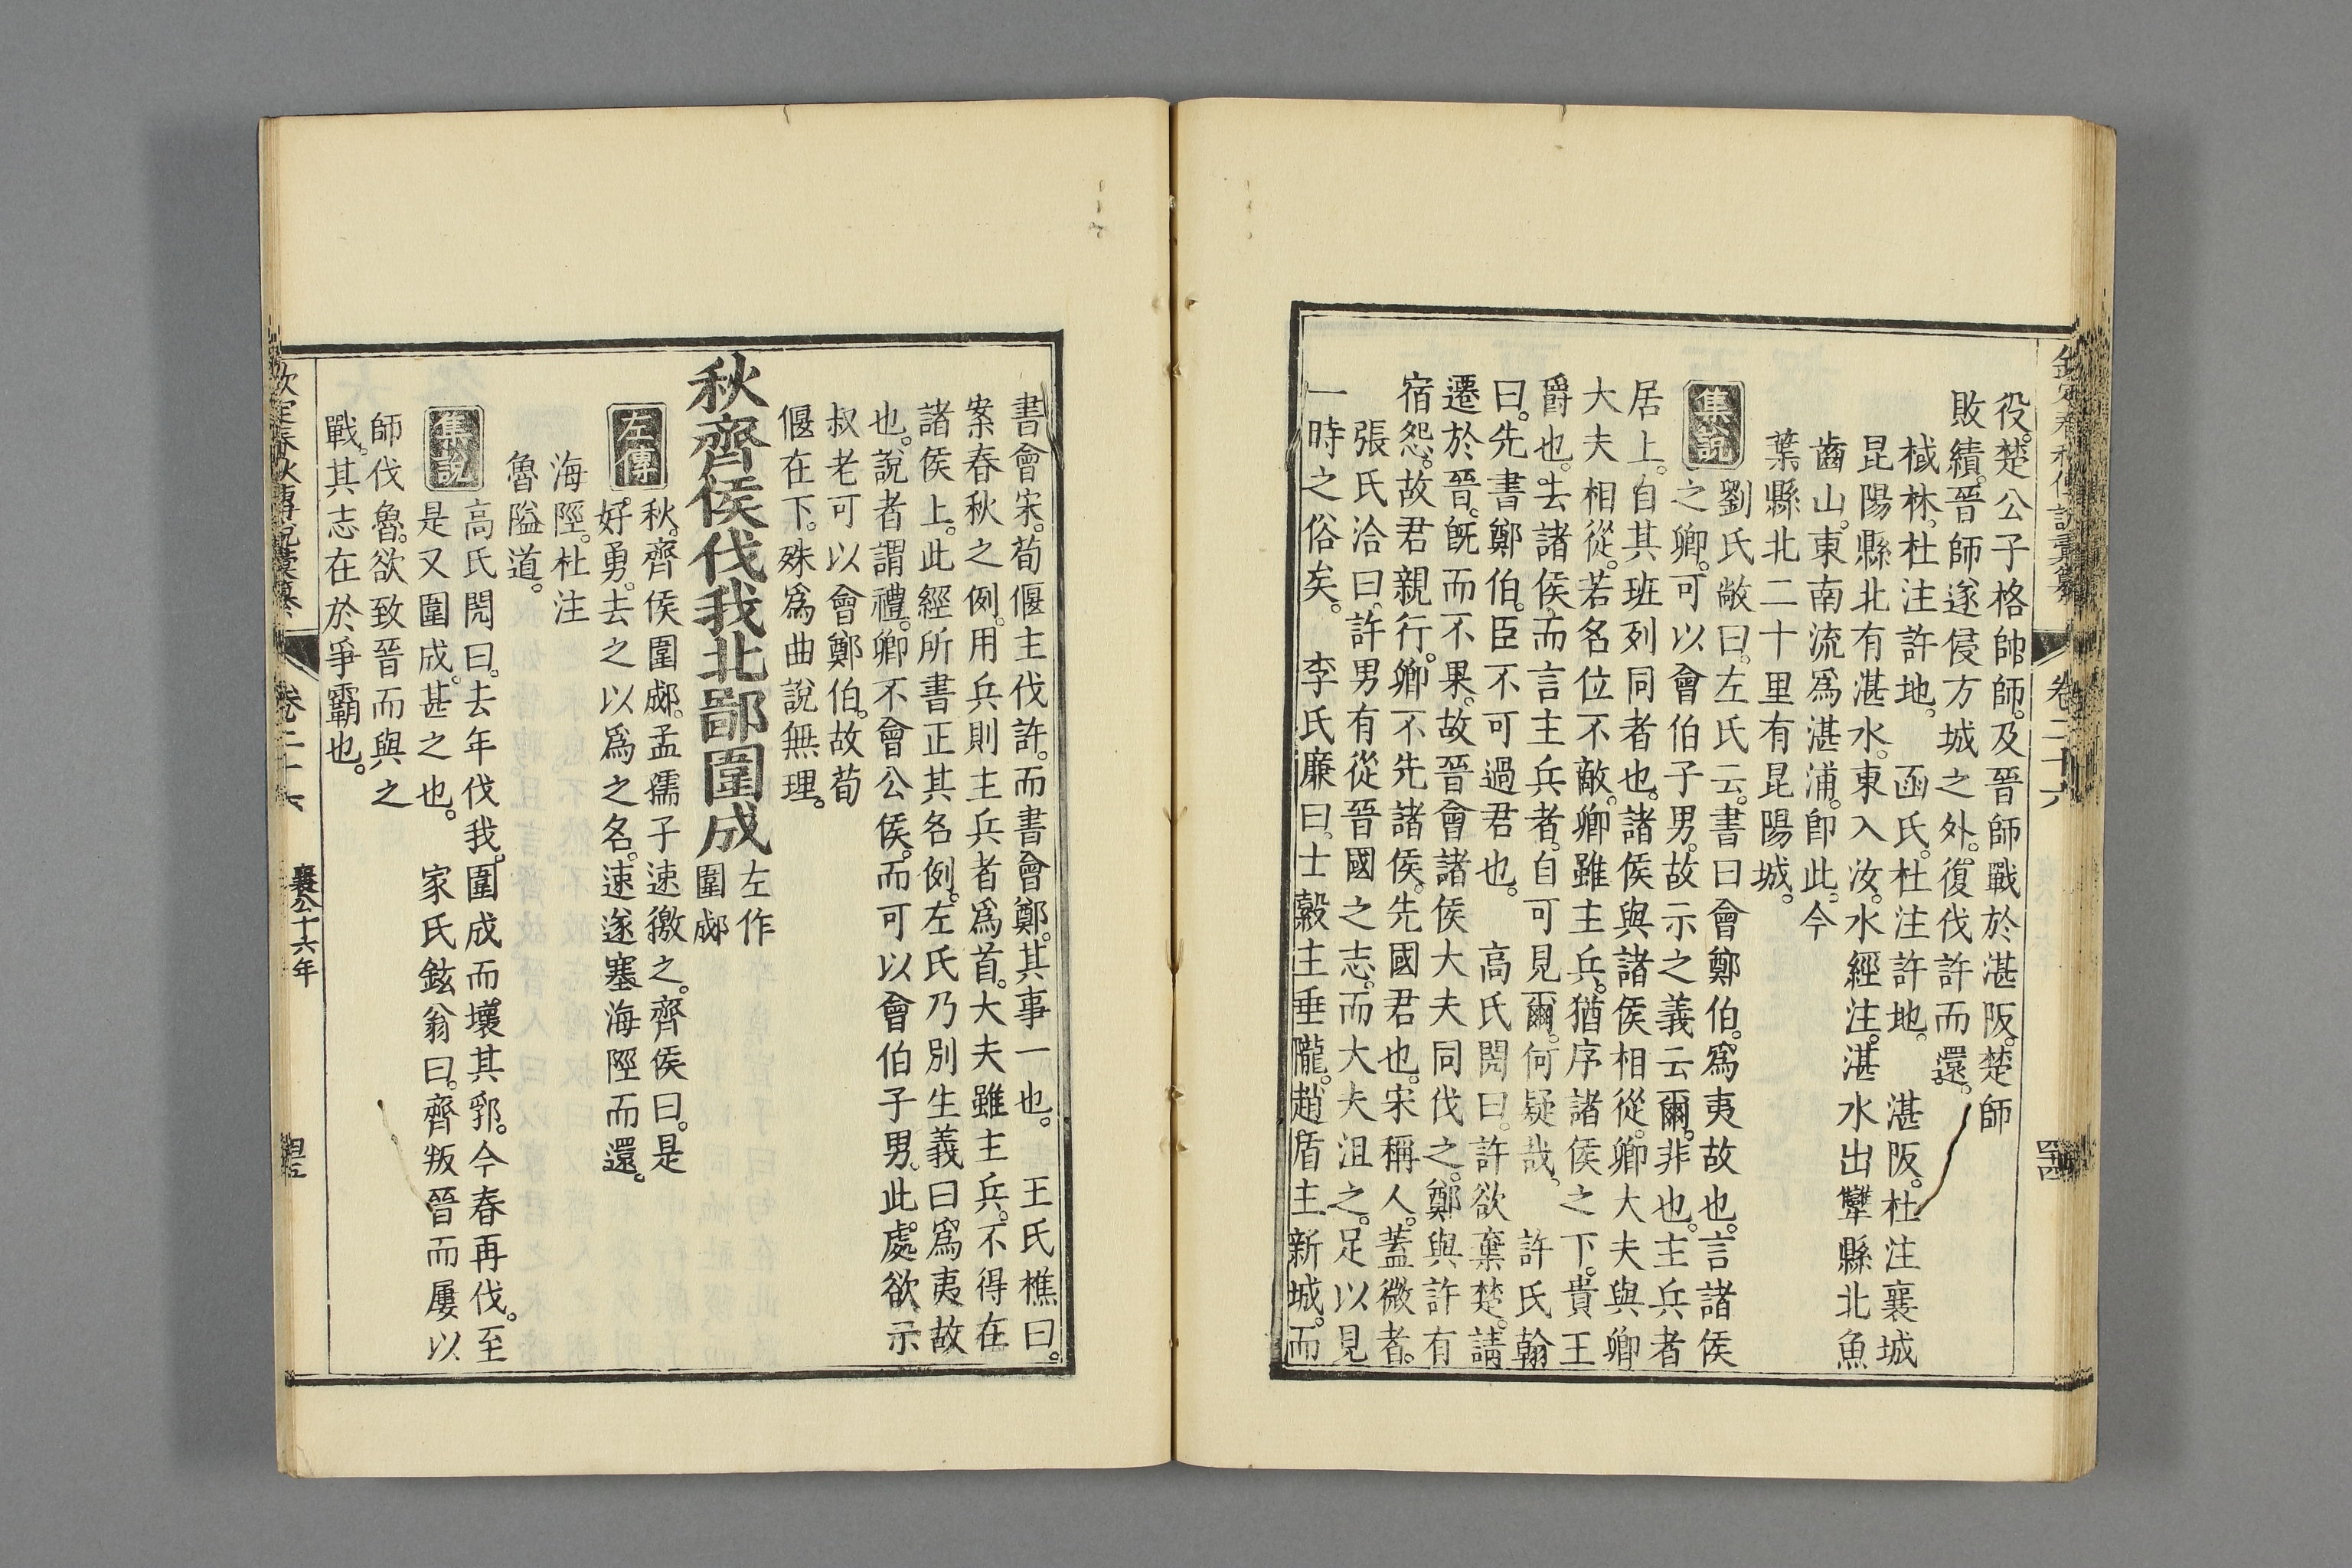 欽定春秋傳說彙纂 卷二十六
役。楚公子格帥師。及晉師戰於湛阪。楚師
敗績。晉師遂侵方城之外。復伐許而還。
棫林。杜注許地。 函氏。杜注許地。 湛阪。杜注襄城
昆陽縣北有湛水。東入汝。水經注。湛水出犫縣北魚
齒山。東南流爲湛浦。卽此。今
葉縣北二十里有昆陽城。
集說 劉氏敞曰。左氏云。書曰會鄭伯。爲夷故也。言諸侯
之卿。可以會伯子男。故示之義云爾。非也。主兵者
居上。自其班列同者也。諸侯與諸侯相從。卿大夫與卿
大夫相從。若名位不敵。卿雖主兵。猶序諸侯之下。貴王
爵也。去諸侯而言主兵者。自可見爾。何疑哉。 許氏翰
曰。先書鄭伯。臣不可過君也。 高氏閌曰。許欲棄楚。請
遷於晉。旣而不果。故晉會諸侯大夫同伐之。鄭與許有
宿怨。故君親行。卿不先諸侯。先國君也。宋稱人。蓋微者。
張氏洽曰。許男有從晉國之志。而大夫沮之。足以見
一時之俗矣。 李氏廉曰。士縠主垂隴。趙盾主新城。而
書會宋。荀偃主伐許。而書會鄭。其事一也。 王氏樵曰。
案春秋之例。用兵則主兵者爲首。大夫雖主兵。不得在
諸侯上。此經所書正其名例。左氏乃別生義曰爲夷故
也。說者謂禮。卿不會公侯。而可以會伯子男。此處欲示
叔老可以會鄭伯。故荀
偃在下。殊爲曲說無理。
秋齊侯伐我北鄙圍成 左作
圍郕
左傳 秋。齊侯圍郕。孟孺子速徼之。齊侯曰。是
好勇。去之以爲之名。速遂塞海陘而還。
海陘。杜注
魯隘道。
集說 高氏閌曰。去年伐我。圍成而壞其郛。今春再伐。至
是又圍成。甚之也。 家氏鉉翁曰。齊叛晉而屢以
師伐魯。欲致晉而與之
戰。其志在於爭霸也。
欽定春秋傳說彙纂 卷二十六 襄公十六年